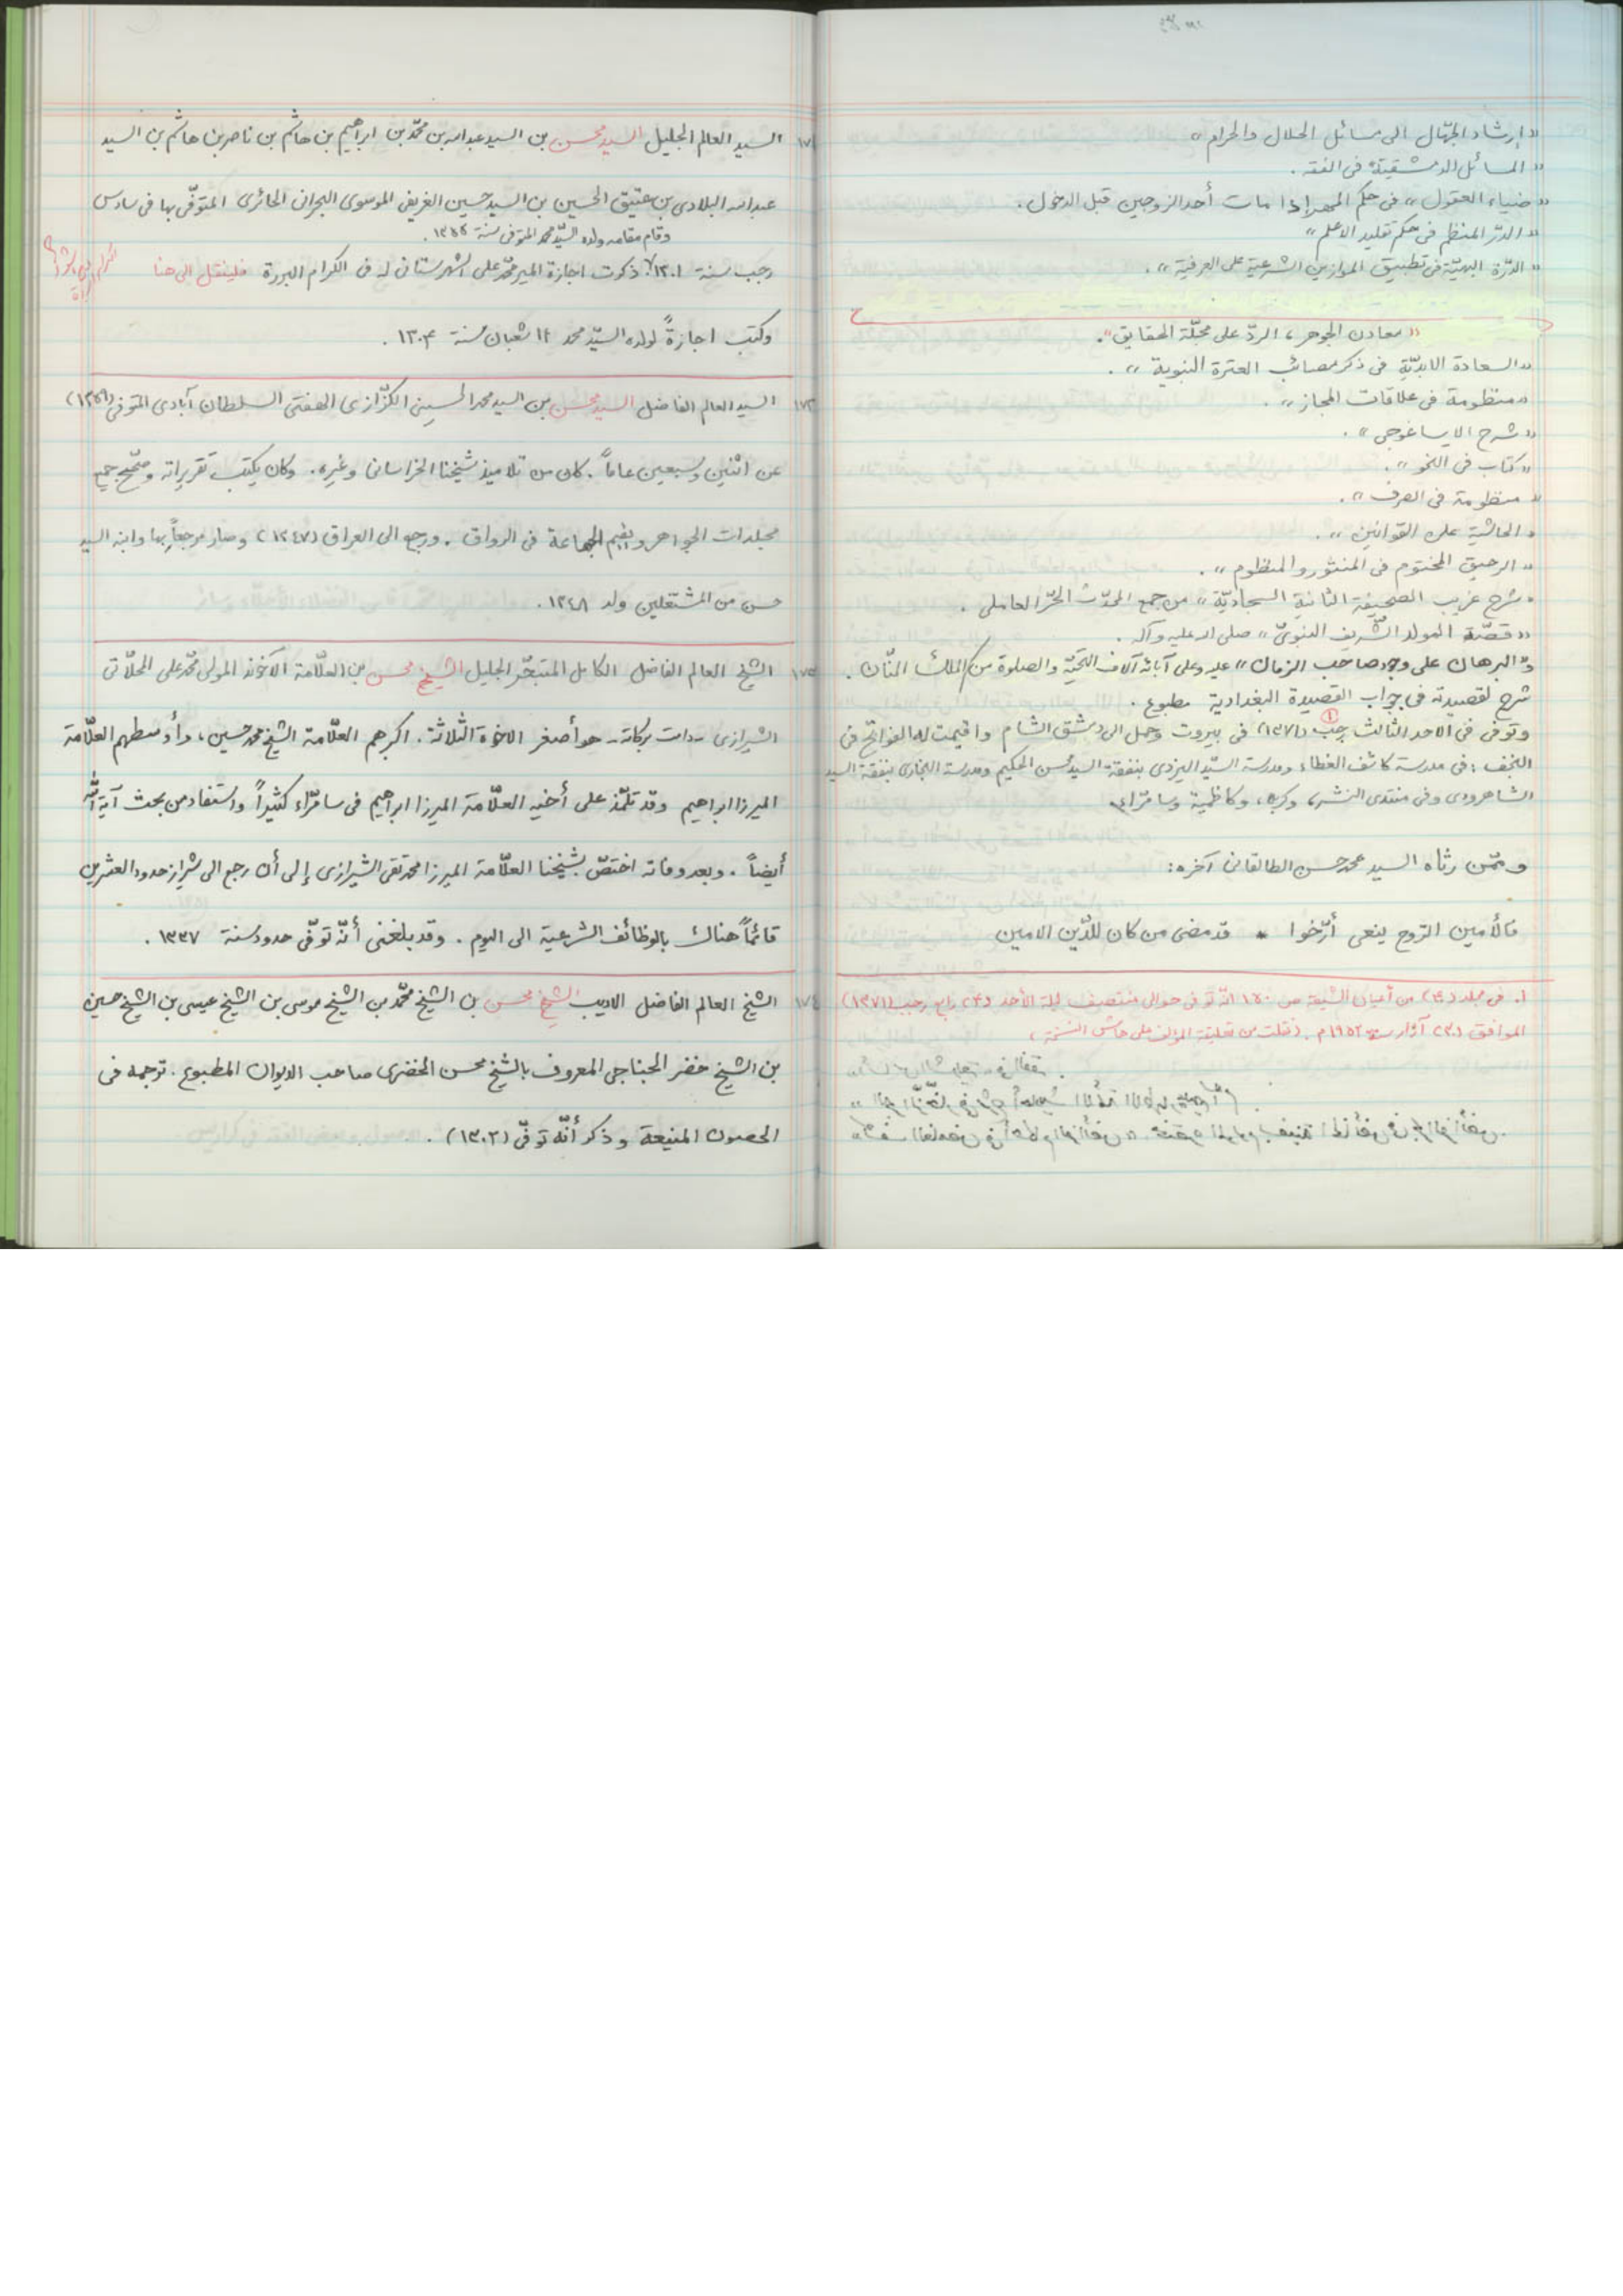 «إرشاد الجهّال الى مسائل الحلال والحرام»
«المسائل الدمشقيّة فى الفقه .
«ضياء العقول» فى حكم المهر إذا مات أحد الزوجين قبل الدخول .
«الدرّ المنظم فى حكم تقليد الاعلم»
«الدّرّة البهيّة فى تطبيق الموازين الشرعية على العرفية» .
«معادن الجوهر، الردّ على مجلّة الحقايق» .
«السعادة الابديّة فى ذكر مصائب العترة النبوية» .
«منظومة فى علاقات المجاز» .
«شرح الايساغوجى» .
«كتاب فى النحو» .
«منظومة فى الصرف» .
«الحاشية على القوانين» .
«الرحيق المختوم فى المنثور والمنظوم» .
«شرح غريب الصحيفة الثانية السجاديّة» من جمع المحدّث الحرّ العاملى .
«قصّة المولد الشّريف النبوىّ» صلى الله عليه وآله .
و«البرهان على وجود صاحب الزمان» عليه وعلى آبائه آلاف التحيّة والصلوة من الملك المنّان .
شرح لقصيدته فى جواب القصيدة البغدادية مطبوع .
وتوفى فى الاحد الثالث رجب (١٣٧١) (١) فى بيروت وحمل الى دمشق الشام واقيمت له الفواتح فى
النجف : فى مدرسة كاشف الغطاء ومدرسة السيّد اليزدى بنفقة السيد محسن الحكيم ومدرسة البخارى بنفقة السيد
الشاهرودى وفى منتدى النشر، وكربلا، وكاظمية وسامرّاء
وممّن رثاه السيد محمد حسن الطالقانى آخره :
فالأمين الرّوح ينعى أرّخوا * قد مضى من كان للدّين الامين
١. فى مجلد (٤٠) من أعيان الشيعة ص ١٤٠ انّه توفى حوالى منتصف ليلة الأحد (٤) رابع رجب (١٣٧١)
الموافق (٣٠) آذار سنة ١٩٥٢م . (نقلت من تعليقة المؤلف على هامش النسخة)
١٧١ السيد العالم الجليل السيد محسن بن السيد عبد الله بن محمّد بن ابراهيم بن هاشم بن ناصر بن هاشم بن السيد
عبد الله البلادى بن عتيق الحسين بن السيد حسين الغريفى الموسوى البحرانى الحائرى المتوفّى بها فى سادس
وقام مقامه ولده السيّد محمد المتوفى سنة
رجب سنة ١٣٠١. ذكرت اجازة المير محمّد على الشهرستانى له فى الكرام البررة فلينقل الى هنا
وكتب اجازةً لولده السيّد محمد ١٢ شعبان سنة ١٣٠٤ .
١٧٢ السيد العالم الفاضل السيد محسن بن السيد محمد الحسينى الكزّازى الهفتى السلطان آبادى المتوفى
عن اثنين وسبعين عاماً . كان من تلاميذ شيخنا الخراسانى وغيره . وكان يكتب تقريراته وصحّح جميع
مجلدات الجواهر ويقيم الجماعة فى الرواق . ورجع الى العراق (١٣٤٧) وصار مرجعاً بها وابنه السيد
حسن من المشتغلين ولد ١٣٤٨ .
١٧٣ الشيخ العالم الفاضل الكامل المتبحّر الجليل الشيخ محسن بن العلّامة الآخوند المولى محمّد على المحلّاتى
الشيرازى - دامت بركاته - هو أصغر الاخوة الثّلاثة . اكبرهم العلّامة الشيخ محمد حسين، وأوسطهم العلّامة
الميرزا ابراهيم وقد تلمّذ على أخيه العلّامة الميرزا ابراهيم فى سامرّاء كثيراً واستفاد من بحث آية الله
أيضاً . وبعد وفاته اختصّ بشيخنا العلّامة الميرزا محمد تقى الشيرازى إلى أن رجع الى شيراز حدود العشرين
قائماً هناك بالوظائف الشرعية الى اليوم . وقد بلغنى أنّه توفّى حدود سنة ١٣٣٧ .
١٧٤ الشيخ العالم الفاضل الاديب الشيخ محسن بن الشيخ محمّد بن الشيخ موسى بن الشيخ عيسى بن الشيخ حسين
بن الشيخ خضر الجناجى المعروف بالشيخ محسن الخضرى صاحب الديوان المطبوع . ترجمه فى
الحصون المنيعة وذكر أنّه توفّى (١٣٠٢) .